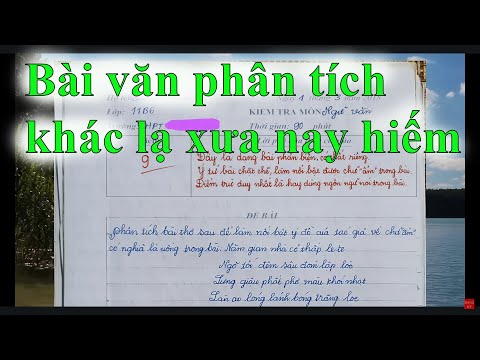 Bài văn phân tích
khác lạ xưa nay hiếm
Lớp: 11B6
KIỂM TRA MÔN Ngữ văn
Thời gian: 90 phút
9
Đây là dạng bài phản biện, có chất riêng.
Ý tứ bài chặt chẽ, làm nổi bật được chữ "ẩm" trong bài.
Điểm trừ duy nhất là hay dùng ngôn ngữ nói trong bài.
ĐỀ BÀI
Phân tích bài thơ sau để làm nổi bật ý đồ của tác giả về chữ "ẩm"
có nghĩa là uống trong bài. Năm gian nhà cỏ thấp le te
Ngõ tối đêm sâu đóm lập lòe
Lưng giậu phất phơ màu khói nhạt
Làn ao lóng lánh bóng trăng loe